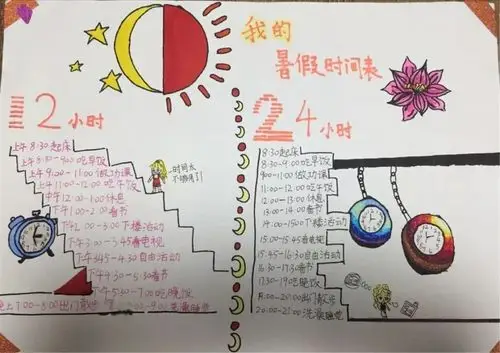 我的
暑假时间表
12小时
上午8:30起床
上午8:30-9:00吃早饭
上午9:00-11:00做功课
上午11:00-12:00吃午饭
中午12:00-1:00休息
下午1:00-2:00看书
下午2:00-3:00下楼活动
下午3:00-3:45看电视
下午3:45-4:30自由活动
下午4:30-5:30看书
下午5:30-7:00吃晚饭
晚上7:00-8:00出门散步
8:00-9:00洗漱睡觉
时间太
不够用了!
24小时
8:30起床
8:30-9:00吃早饭
9:00-11:00做功课
11:00-12:00吃午饭
12:00-13:00休息
13:00-14:00看书
14:00-15:00下楼活动
15:00-15:45看电视
15:45-16:30自由活动
16:30-17:30看书
17:30-19:00吃晚饭
19:00-20:00出门散步
20:00-21:00洗漱睡觉